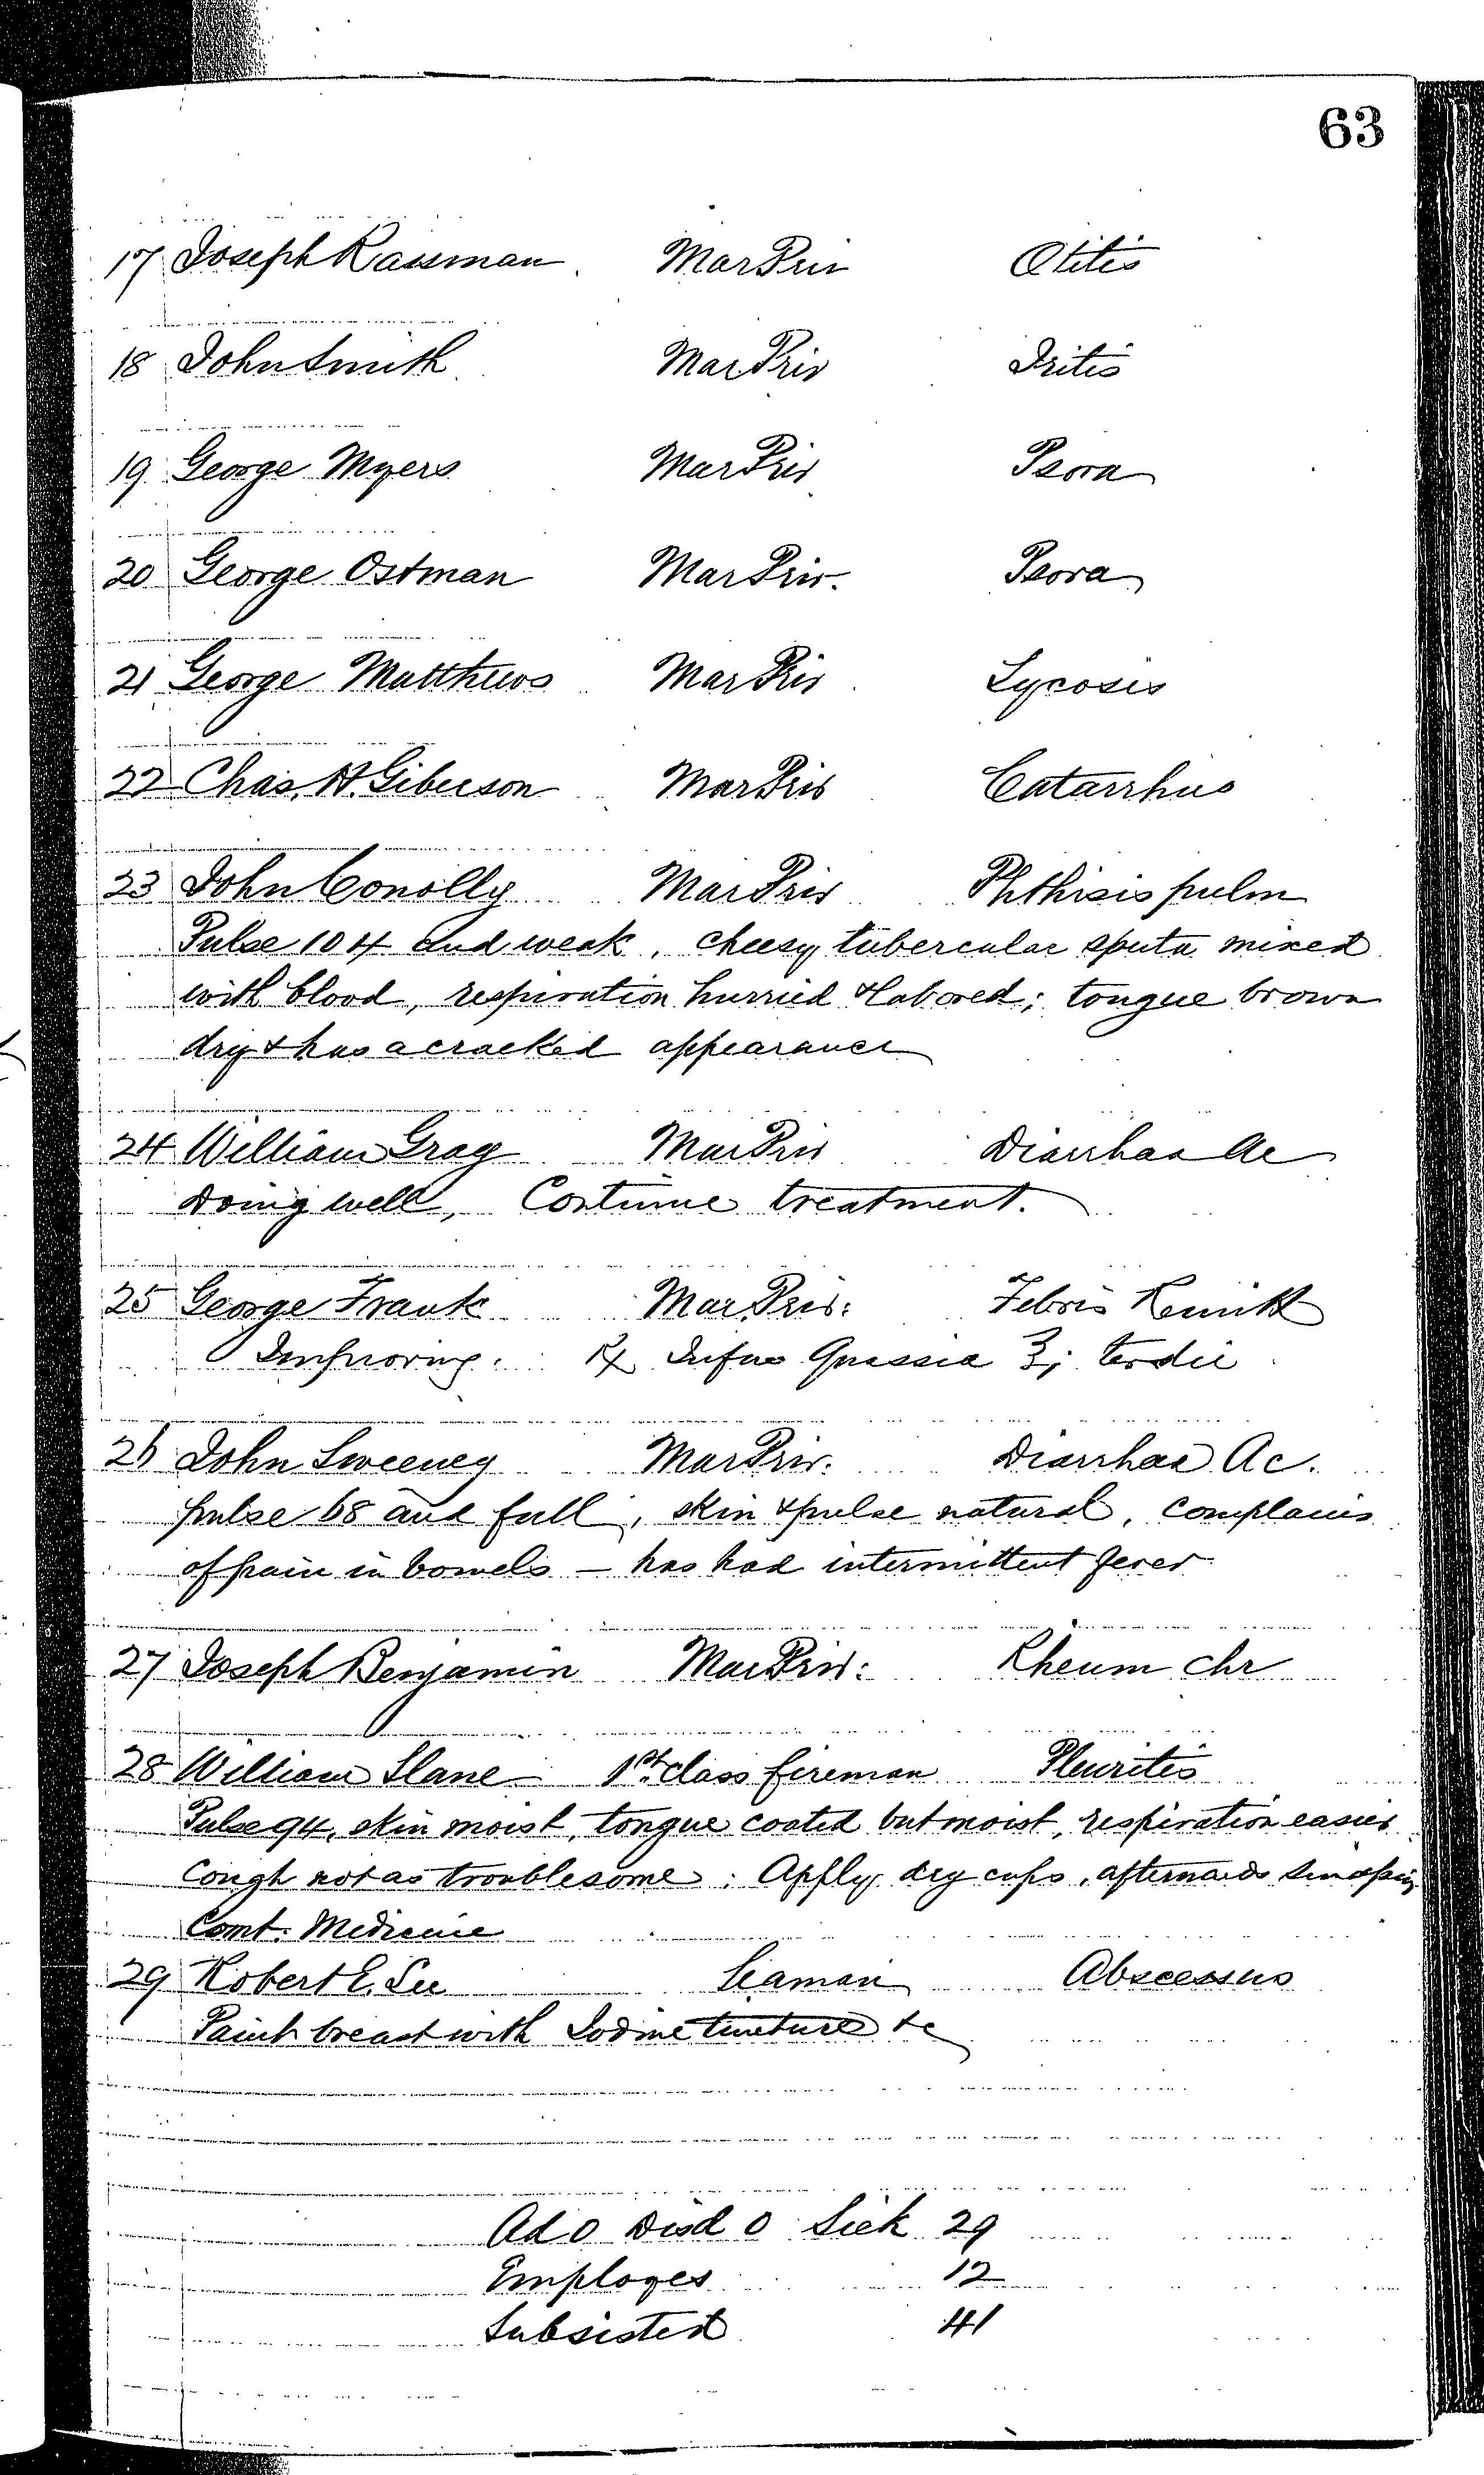 63
17 Joseph Rassman Mar Priv Otitis
18 John Smith Mar Priv Iritis
19 George Myers Mar Priv Psora
20 George Ostman Mar Priv. Psora
21 George Matthews Mar Priv Sycosis
22 Chas. H. Giberson Mar Priv Catarrhus
23 John Conolly Mar Priv Phthisis pulm
Pulse 104 and weak, cheesy tubercular sputa mixed
with blood, respiration hurried & labored; tongue brown
dry & has a cracked appearance
24 William Gray Mar Priv Diarrhœa Ac
Doing well, Continue treatment.
25 George Frank Mar. Priv. Febris Remitt
Improving. ℞ Infus Quassia ℥j ter die
26 John Sweeney Mar Priv. Diarrhœa Ac.
pulse 68 and full, skin & pulse natural, complains
of pain in bowels — has had intermittent fever
27 Joseph Benjamin Mar Priv. Rheum chr
28 William Slane 1st. class fireman Pleuritis
Pulse 94, skin moist, tongue coated but moist, respiration easier
Cough not as troublesome. Apply dry cups, afterwards
Cont. Medicine
29 Robert E. Lee Seaman Abscessus
Paint breast with Iodine tincture &c
Ad 0 Disd 0 Sick 29
Employes 12
Subsisted 41